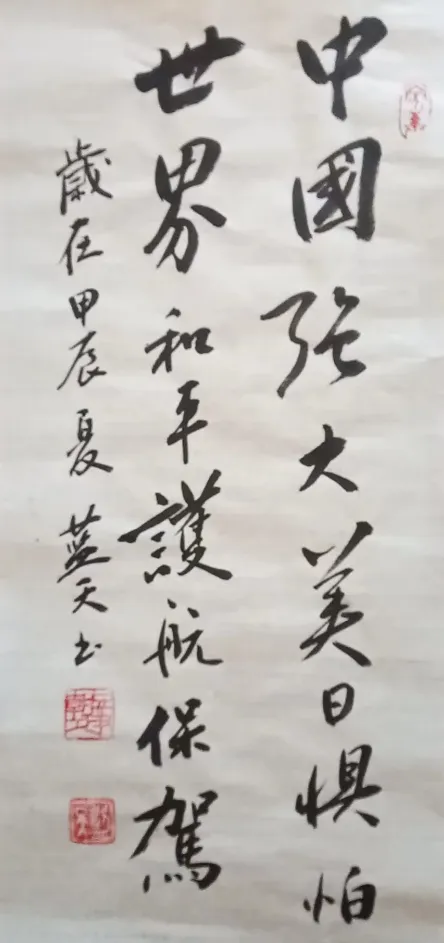 中國強大美日懼怕
世界和平護航保駕
歲在甲辰夏藍天书